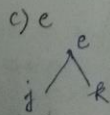 c) e
e
j k